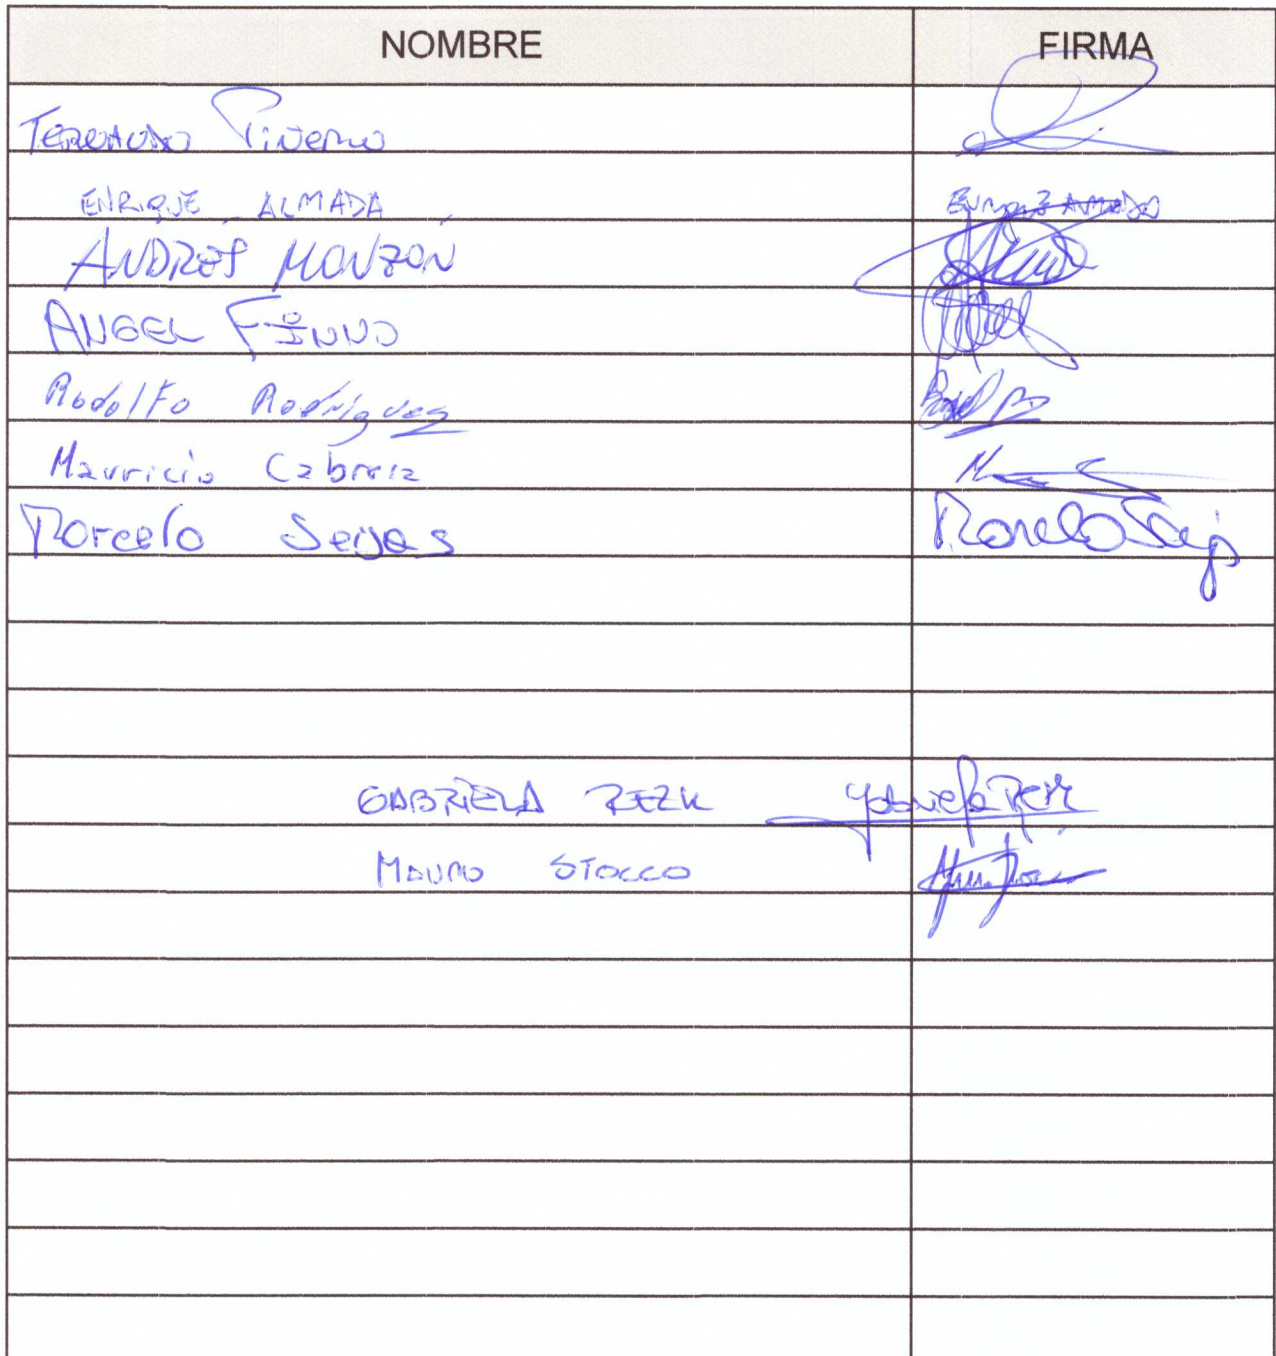 NOMBRE FIRMA
Fernando Piñeiro
ENRIQUE ALMADA ENRIQUE ALMADA
ANDRÉS MONZÓN
ANGEL
Rodolfo Rodríguez
Mauricio Cabrera
Marcelo Seijas Marcelo Seijas
GABRIELA REZK Gabriela Rezk
MAURO STOCCO